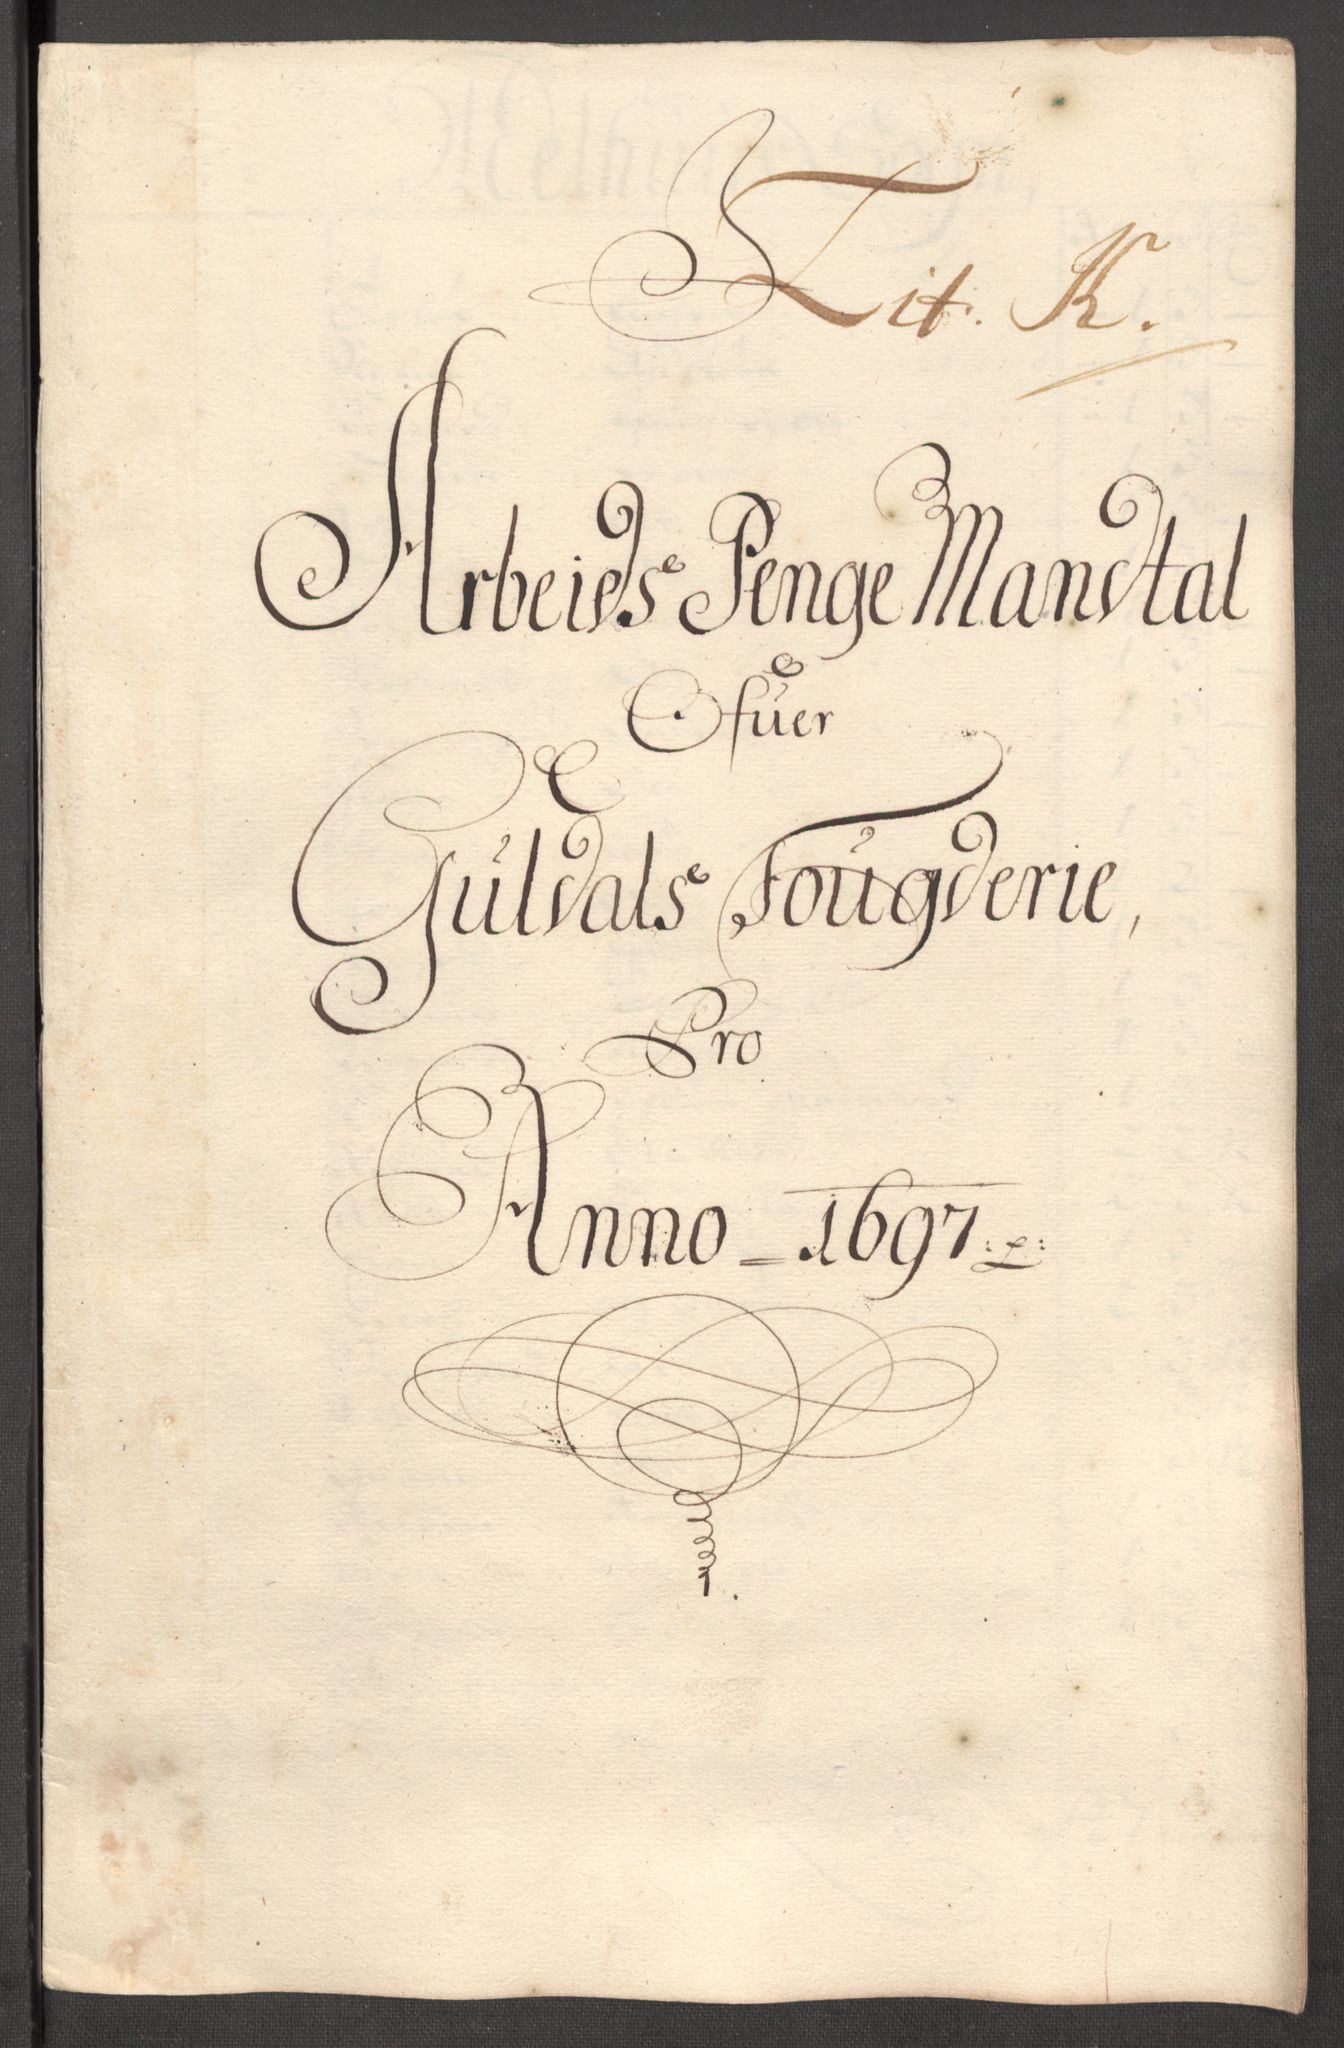 Lit. K.
Arbeids Penge Mandtal
Ofuer
Guldals Fougderie,
Pro
Anno = 1697